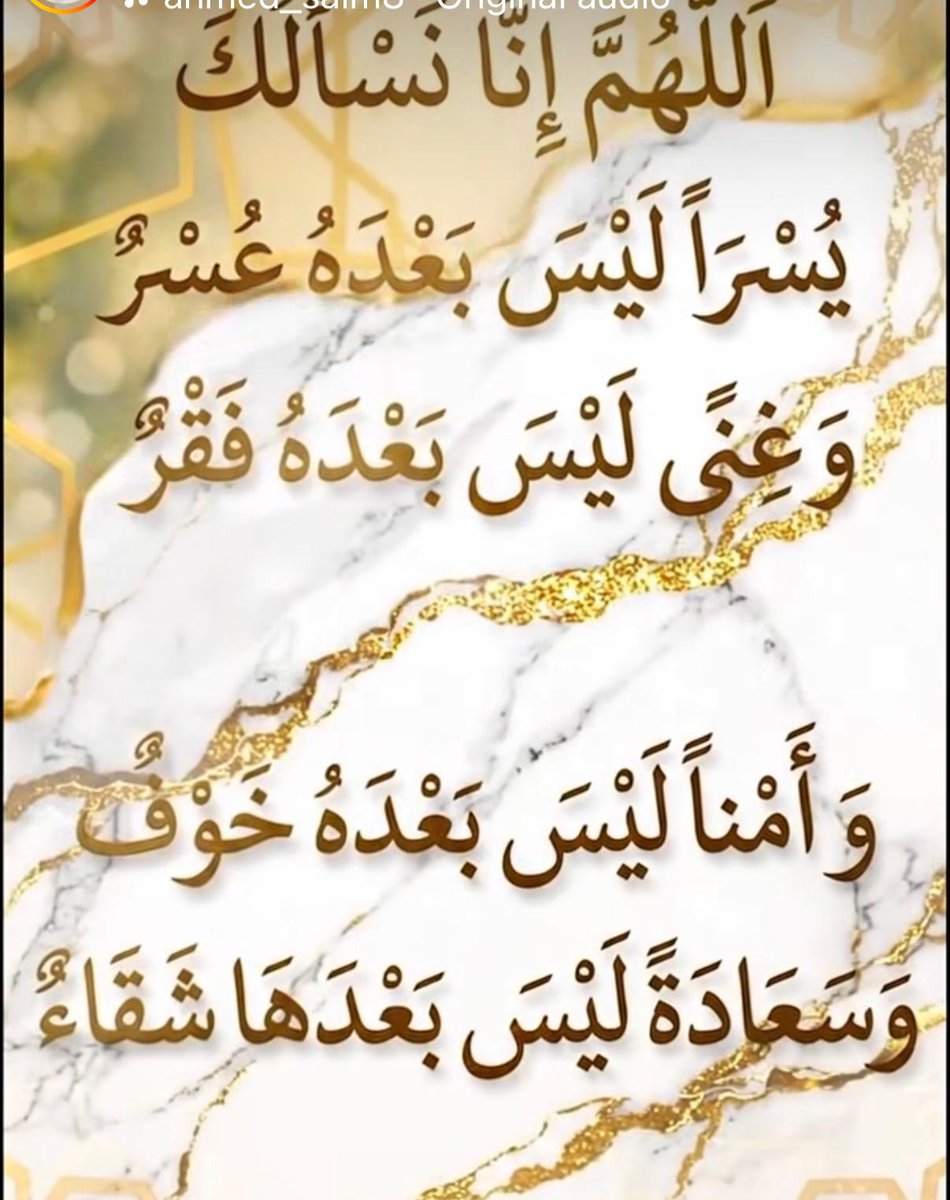 ahmed_salm8 Original audio
اَللّٰهُمَّ إِنَّا نَسْأَلُكَ
يُسْرَاً لَيْسَ بَعْدَهُ عُسْرٌ
وَ غِنًى لَيْسَ بَعْدَهُ فَقْرٌ
وَ أَمْناً لَيْسَ بَعْدَهُ خَوْفٌ
وَسَعَادَةً لَيْسَ بَعْدَهَا شَقَاءٌ